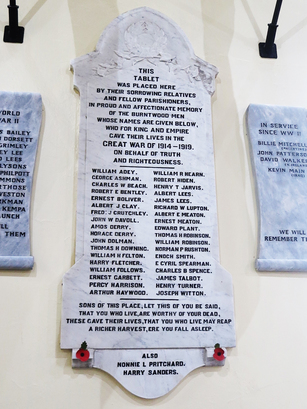 THIS
TABLET
WAS PLACED HERE
BY THEIR SORROWING RELATIVES
AND FELLOW PARISHIONERS,
IN PROUD AND AFFECTIONATE MEMORY
OF THE BURNTWOOD MEN
WHOSE NAMES ARE GIVEN BELOW,
WHO FOR KING AND EMPIRE
GAVE THEIR LIVES IN THE
GREAT WAR OF 1914-1919.
ON BEHALF OF TRUTH
AND RIGHTEOUSNESS.
WILLIAM ADEY, WILLIAM H HEARN.
GEORGE ASHMAN, ROBERT HIDEN.
CHARLES W BEACH, HENRY T JARVIS.
ROBERT E BENTLEY, ALBERT LEES.
ERNEST BOLIVER, JAMES LEES.
ALBERT J CLAY, RICHARD W LUPTON.
FRED J CRUTCHLEY, ALBERT E MEATON.
JOHN W DAVOLL, ERNEST MEATON.
AMOS DERRY, EDWARD PLANT.
HORACE DERRY, THOMAS H ROBINSON.
JOHN DOLMAN, WILLIAM ROBINSON.
THOMAS H DOWNING, NORMAN P RUSHTON.
WILLIAM H FELTON, ENOCH SMITH.
HARRY FLETCHER, E CYRIL SPEARMAN.
WILLIAM FOLLOWS, CHARLES B SPENCE.
ERNEST GARBETT, JAMES TALBOT.
PERCY HARRISON, HENRY TURNER.
ARTHUR HAYWOOD, JOSEPH WITTON.
SONS OF THIS PLACE, LET THIS OF YOU BE SAID,
THAT YOU WHO LIVE, ARE WORTHY OF YOUR DEAD,
THESE GAVE THEIR LIVES, THAT YOU WHO LIVE MAY REAP
A RICHER HARVEST, ERE YOU FALL ASLEEP.
ALSO
NONNIE L PRITCHARD.
HARRY SANDERS.
WORLD
WAR II
BAILEY
DORSETT
GRIMLEY
LEE
LEES
LYSONS
PHILPOTT
SIMMONS
WESTON
KEMERA
LAUNCH
WILL
THEM
IN SERVICE
SINCE WW II
BILLIE MITCHELL
JOHN PATTERSON
DAVID WALKER
KEVIN MAIN
WE WILL
REMEMBER TH